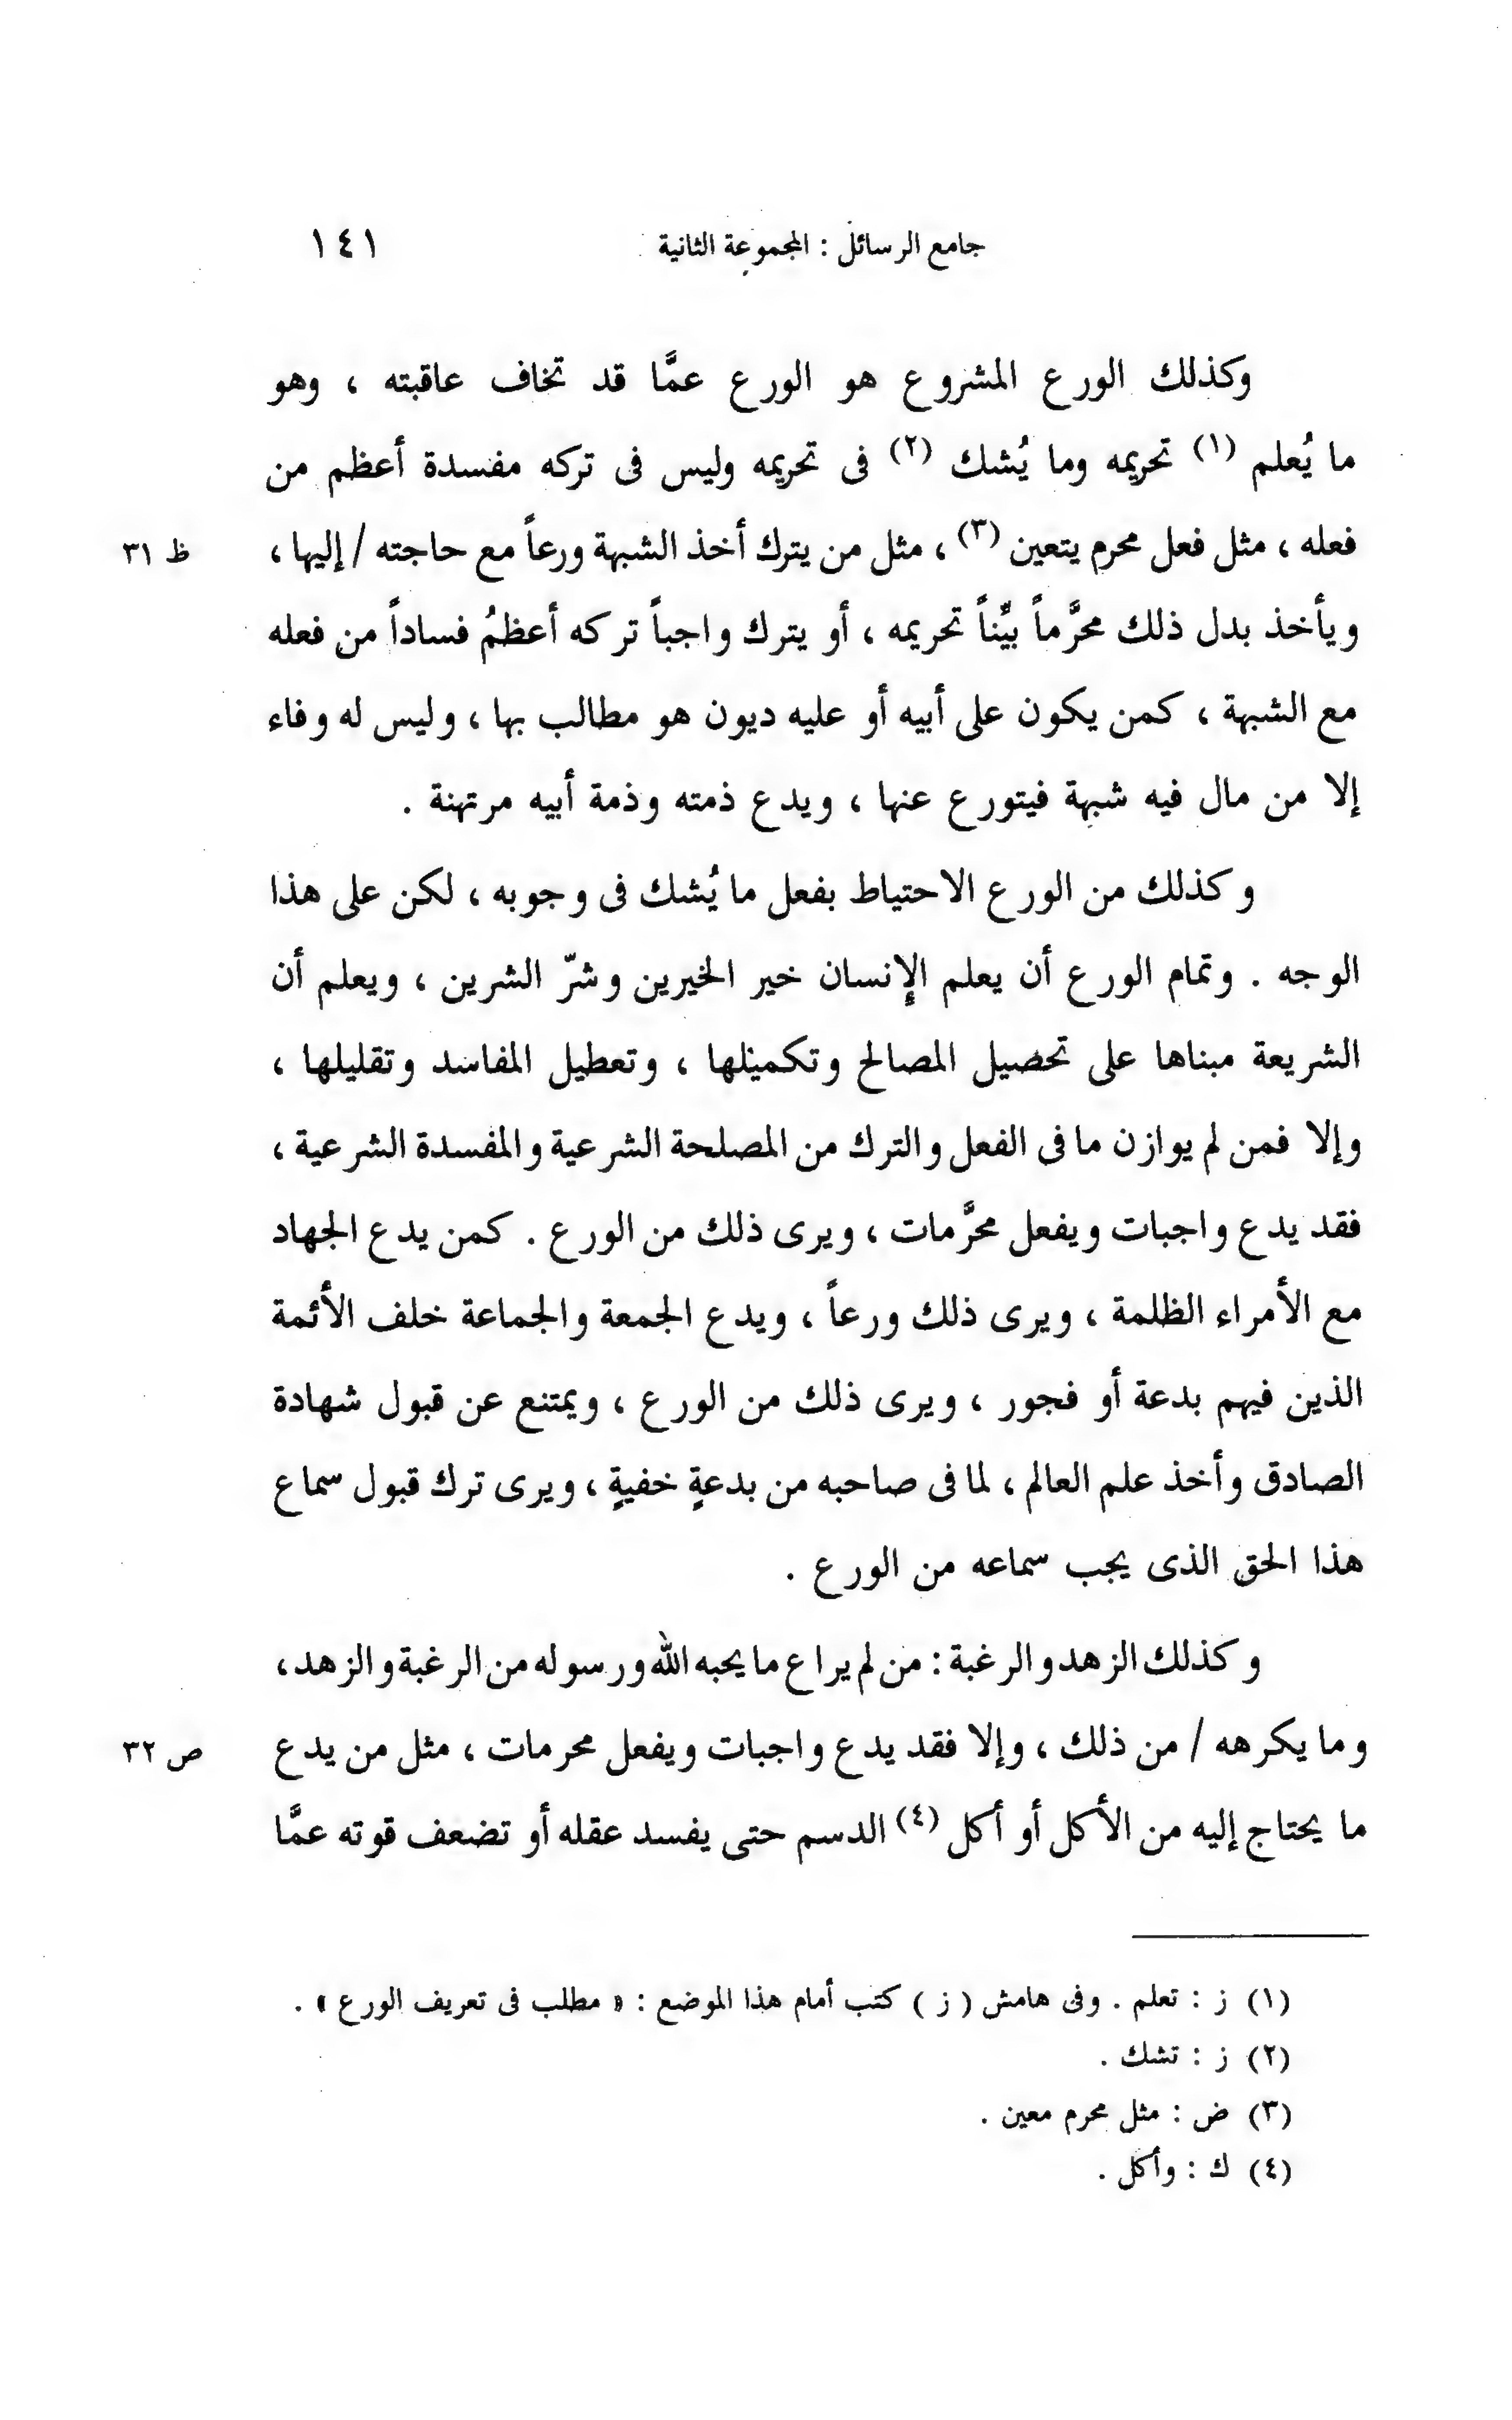 جامع الرسائل : المجموعة الثانية ١٤١
وكذلك الورع المشروع هو الورع عمَّا قد تخاف عاقبته ، وهو
ما يُعلم (١) تحريمه وما يُشك (٢) فى تحريمه وليس فى تركه مفسدة أعظم من
فعله ، مثل فعل محرم يتعين (٣) ، مثل من يترك أخذ الشبهة ورعاً مع حاجته / إليها ، ظ ٣١
ويأخذ بدل ذلك محرَّماً بيِّناً تحريمه ، أو يترك واجباً تركه أعظمُ فساداً من فعله
مع الشبهة ، كمن يكون على أبيه أو عليه ديون هو مطالب بها ، وليس له وفاء
إلا من مال فيه شبهة فيتورع عنها ، ويدع ذمته وذمة أبيه مرتهنة .
وكذلك من الورع الاحتياط بفعل ما يُشك فى وجوبه ، لكن على هذا
الوجه . وتمام الورع أن يعلم الإنسان خير الخيرين وشرّ الشرين ، ويعلم أن
الشريعة مبناها على تحصيل المصالح وتكميلها ، وتعطيل المفاسد وتقليلها ،
وإلا فمن لم يوازن ما فى الفعل والترك من المصلحة الشرعية والمفسدة الشرعية ،
فقد يدع واجبات ويفعل محرَّمات ، ويرى ذلك من الورع . كمن يدع الجهاد
مع الأمراء الظلمة ، ويرى ذلك ورعاً ، ويدع الجمعة والجماعة خلف الأئمة
الذين فيهم بدعة أو فجور ، ويرى ذلك من الورع ، ويمتنع عن قبول شهادة
الصادق وأخذ علم العالم ، لما فى صاحبه من بدعةٍ خفيةٍ ، ويرى ترك قبول سماع
هذا الحق الذى يجب سماعه من الورع .
وكذلك الزهد والرغبة : من لم يراع ما يحبه الله ورسوله من الرغبة والزهد ،
وما يكرهه / من ذلك ، وإلا فقد يدع واجبات ويفعل محرمات ، مثل من يدع ص ٣٢
ما يحتاج إليه من الأكل أو أكل (٤) الدسم حتى يفسد عقله أو تضعف قوته عمَّا
(١) ز : تعلم . وفى هامش ( ز ) كتب أمام هذا الموضع : « مطلب فى تعريف الورع » .
(٢) ز : تشك .
(٣) ض : مثل محرم معين .
(٤) ك : وأكل .